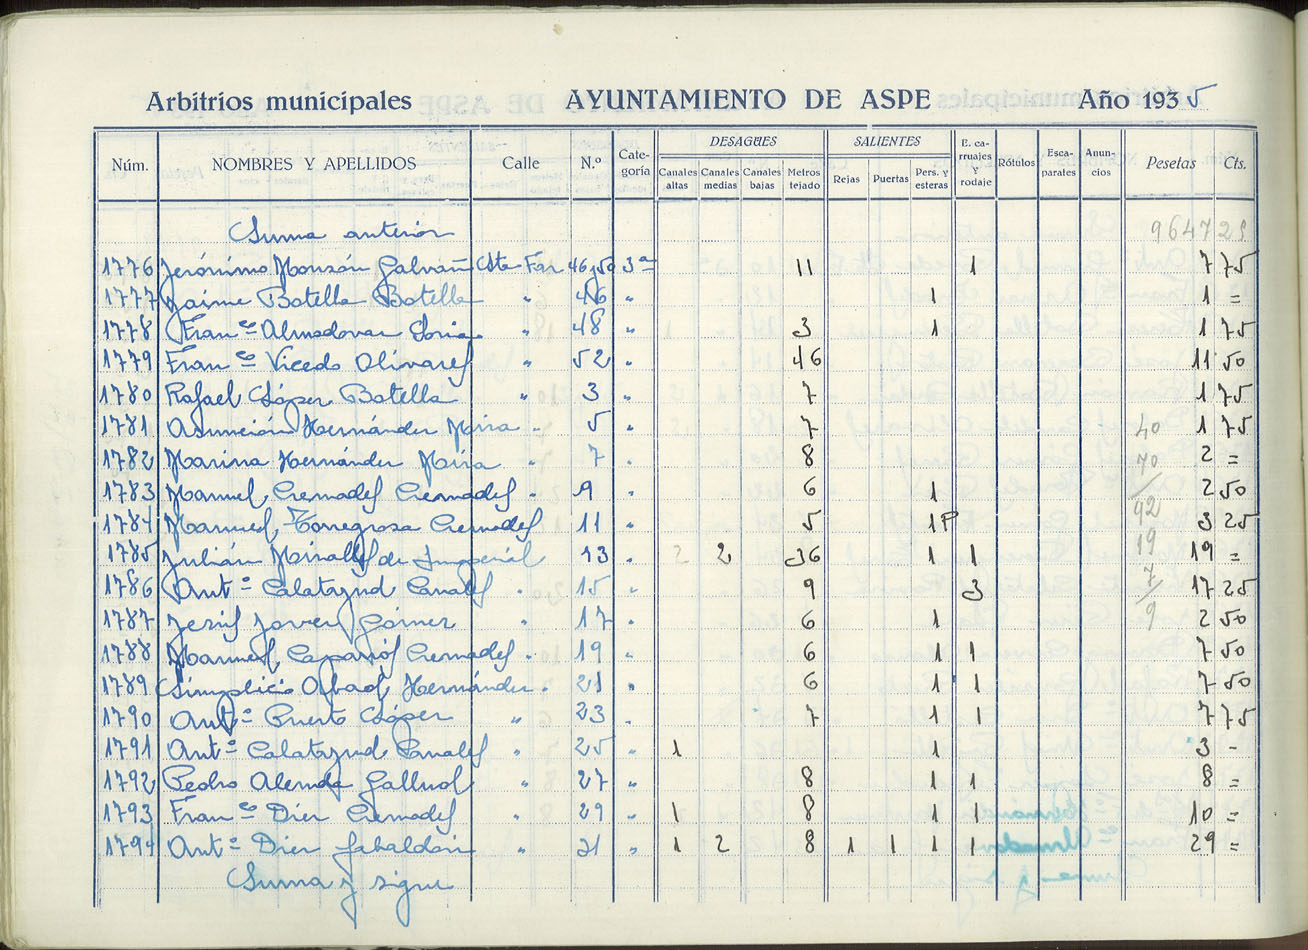 Arbitrios municipales AYUNTAMIENTO DE ASPE Año 1935
Núm. NOMBRES Y APELLIDOS Calle N.º Cate-goría DESAGÜES SALIENTES E. ca-rruajes y rodaje Rótulos Esca-parates Anun-cios Pesetas Cts.
Canales altas Canales medias Canales bajas Metros tejado Rejas Puertas Pers. y esteras
Suma anterior 9647 25
1776 Jerónimo Monzón Galvañ Cste Far 46,50 3ª 11 1 7 75
1777 Jaime Botella Botella " 46 " 1 1 =
1778 Franco Almodovar Soria " 48 " 3 1 1 75
1779 Franco Vicedo Olivares " 52 " 46 11 50
1780 Rafael López Botella " 3 " 7 1 75
1781 Asunción Hernández Mira " 5 " 7 40 1 75
1782 Marina Hernández Mira " 7 " 8 70 2 =
1783 Manuel Cremades Cremades " 9 " 6 1 2 50
1784 Manuel Torregrosa Cremades " 11 " 5 1 P 92 3 25
1785 Julián Miralles de Imperial " 13 " 2 2 36 1 1 19 19 =
1786 Antº Calatayud Canals " 15 " 9 3 7 17 25
1787 Jesús Jover Gómez " 17 " 6 1 9 2 50
1788 Manuel Caparrós Cremades " 19 " 6 1 1 7 50
1789 Simplicio Abad Hernández " 21 " 6 1 1 7 50
1790 Antº Puerto López " 23 " 7 1 1 7 75
1791 Antº Calatayud Canals " 25 " 1 1 3 -
1792 Pedro Alenda Galluol " 27 " 8 1 1 8 =
1793 Franco Díez Cremades " 29 " 1 8 1 1 10 =
1794 Antº Díez Gabaldón " 31 " 1 2 8 1 1 1 1 29 =
Suma y sigue